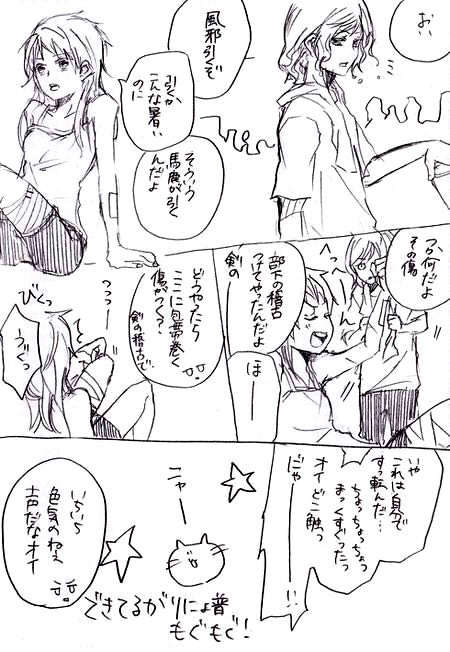 おい
風邪引くぞ
引くか
こんな暑い
のに
そういう
馬鹿が引く
んだよ
つか何だよ
その傷
部下の稽古
つけてやったんだよ
剣の
ほーーー
どうやったら
ここに包帯巻く
傷がつく?
剣の稽古で
つつーー
びくっ
うぐっ
いや
これは自分で
すっ転んだ…
ちょっちょっちょっ
まっくすぐったっ
オイどこ触っ
にゃーーー!!
ニャーーー
いちいち
色気のねえ
声だなオイ
できてるがりにょ普
もぐもぐ!